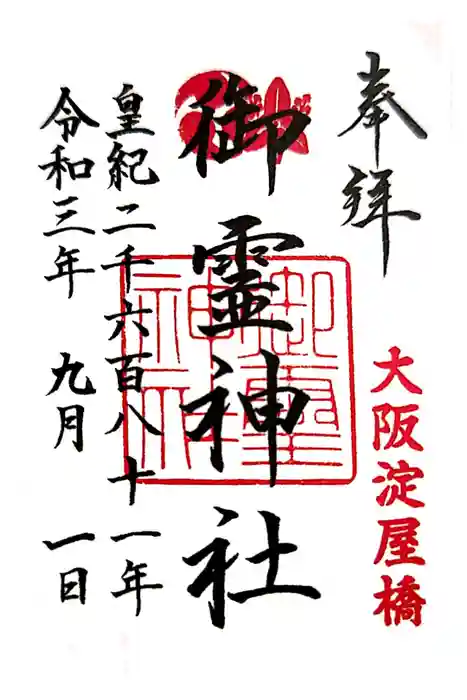 奉拝
大阪淀屋橋
御霊神社
御霊神社
皇紀二千六百八十一年
令和三年 九月 一日